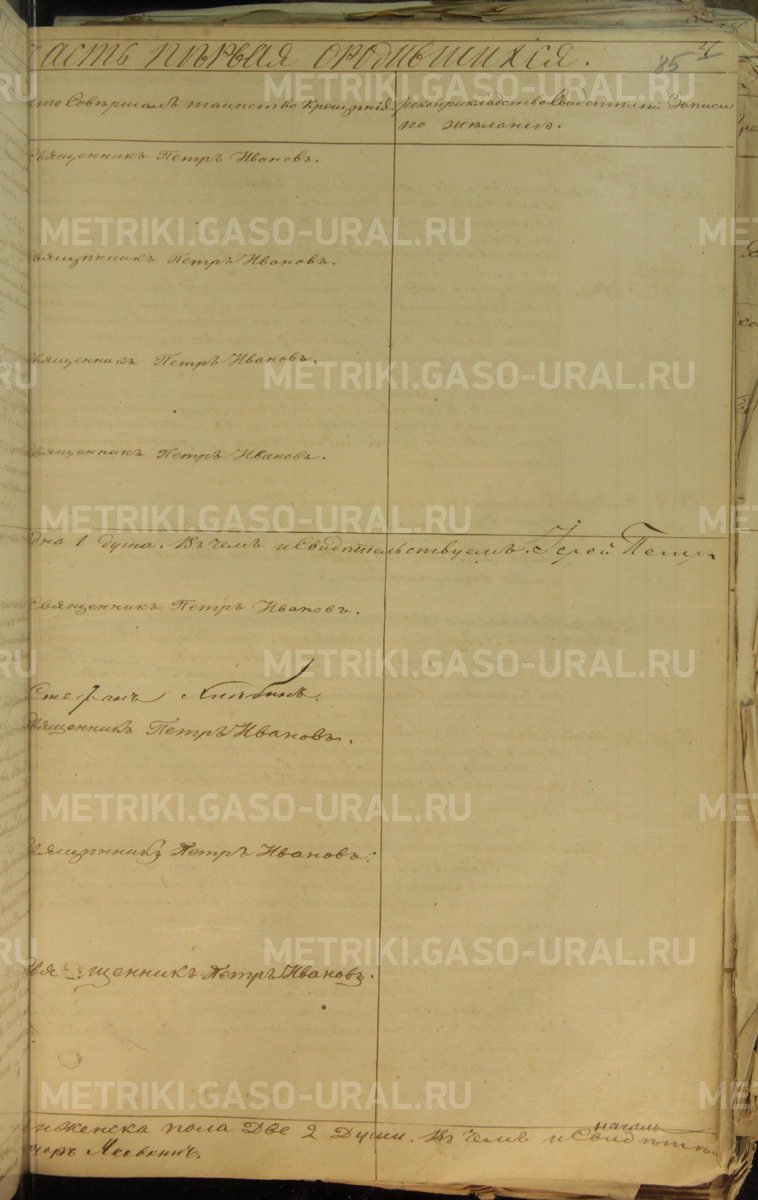 часть первая о родившихся.
85
кто Совершалъ таинство крещенія
рукоприкладство Свидетелей Записи
по желанію.
Священникъ Петръ Ивановъ.
Священникъ Петръ Ивановъ.
Священникъ Петръ Ивановъ.
Священникъ Петръ Ивановъ.
одна 1 душа. Въ чемъ и Свидетельствуемъ. Іерей Петръ
Священникъ Петръ Ивановъ.
Стефанъ
Священникъ Петръ Ивановъ.
Священникъ Петръ Ивановъ.
Священникъ Петръ Ивановъ.
женска пола Две 2 Души. Въ Чемъ и
METRIKI.GASO-URAL.RU